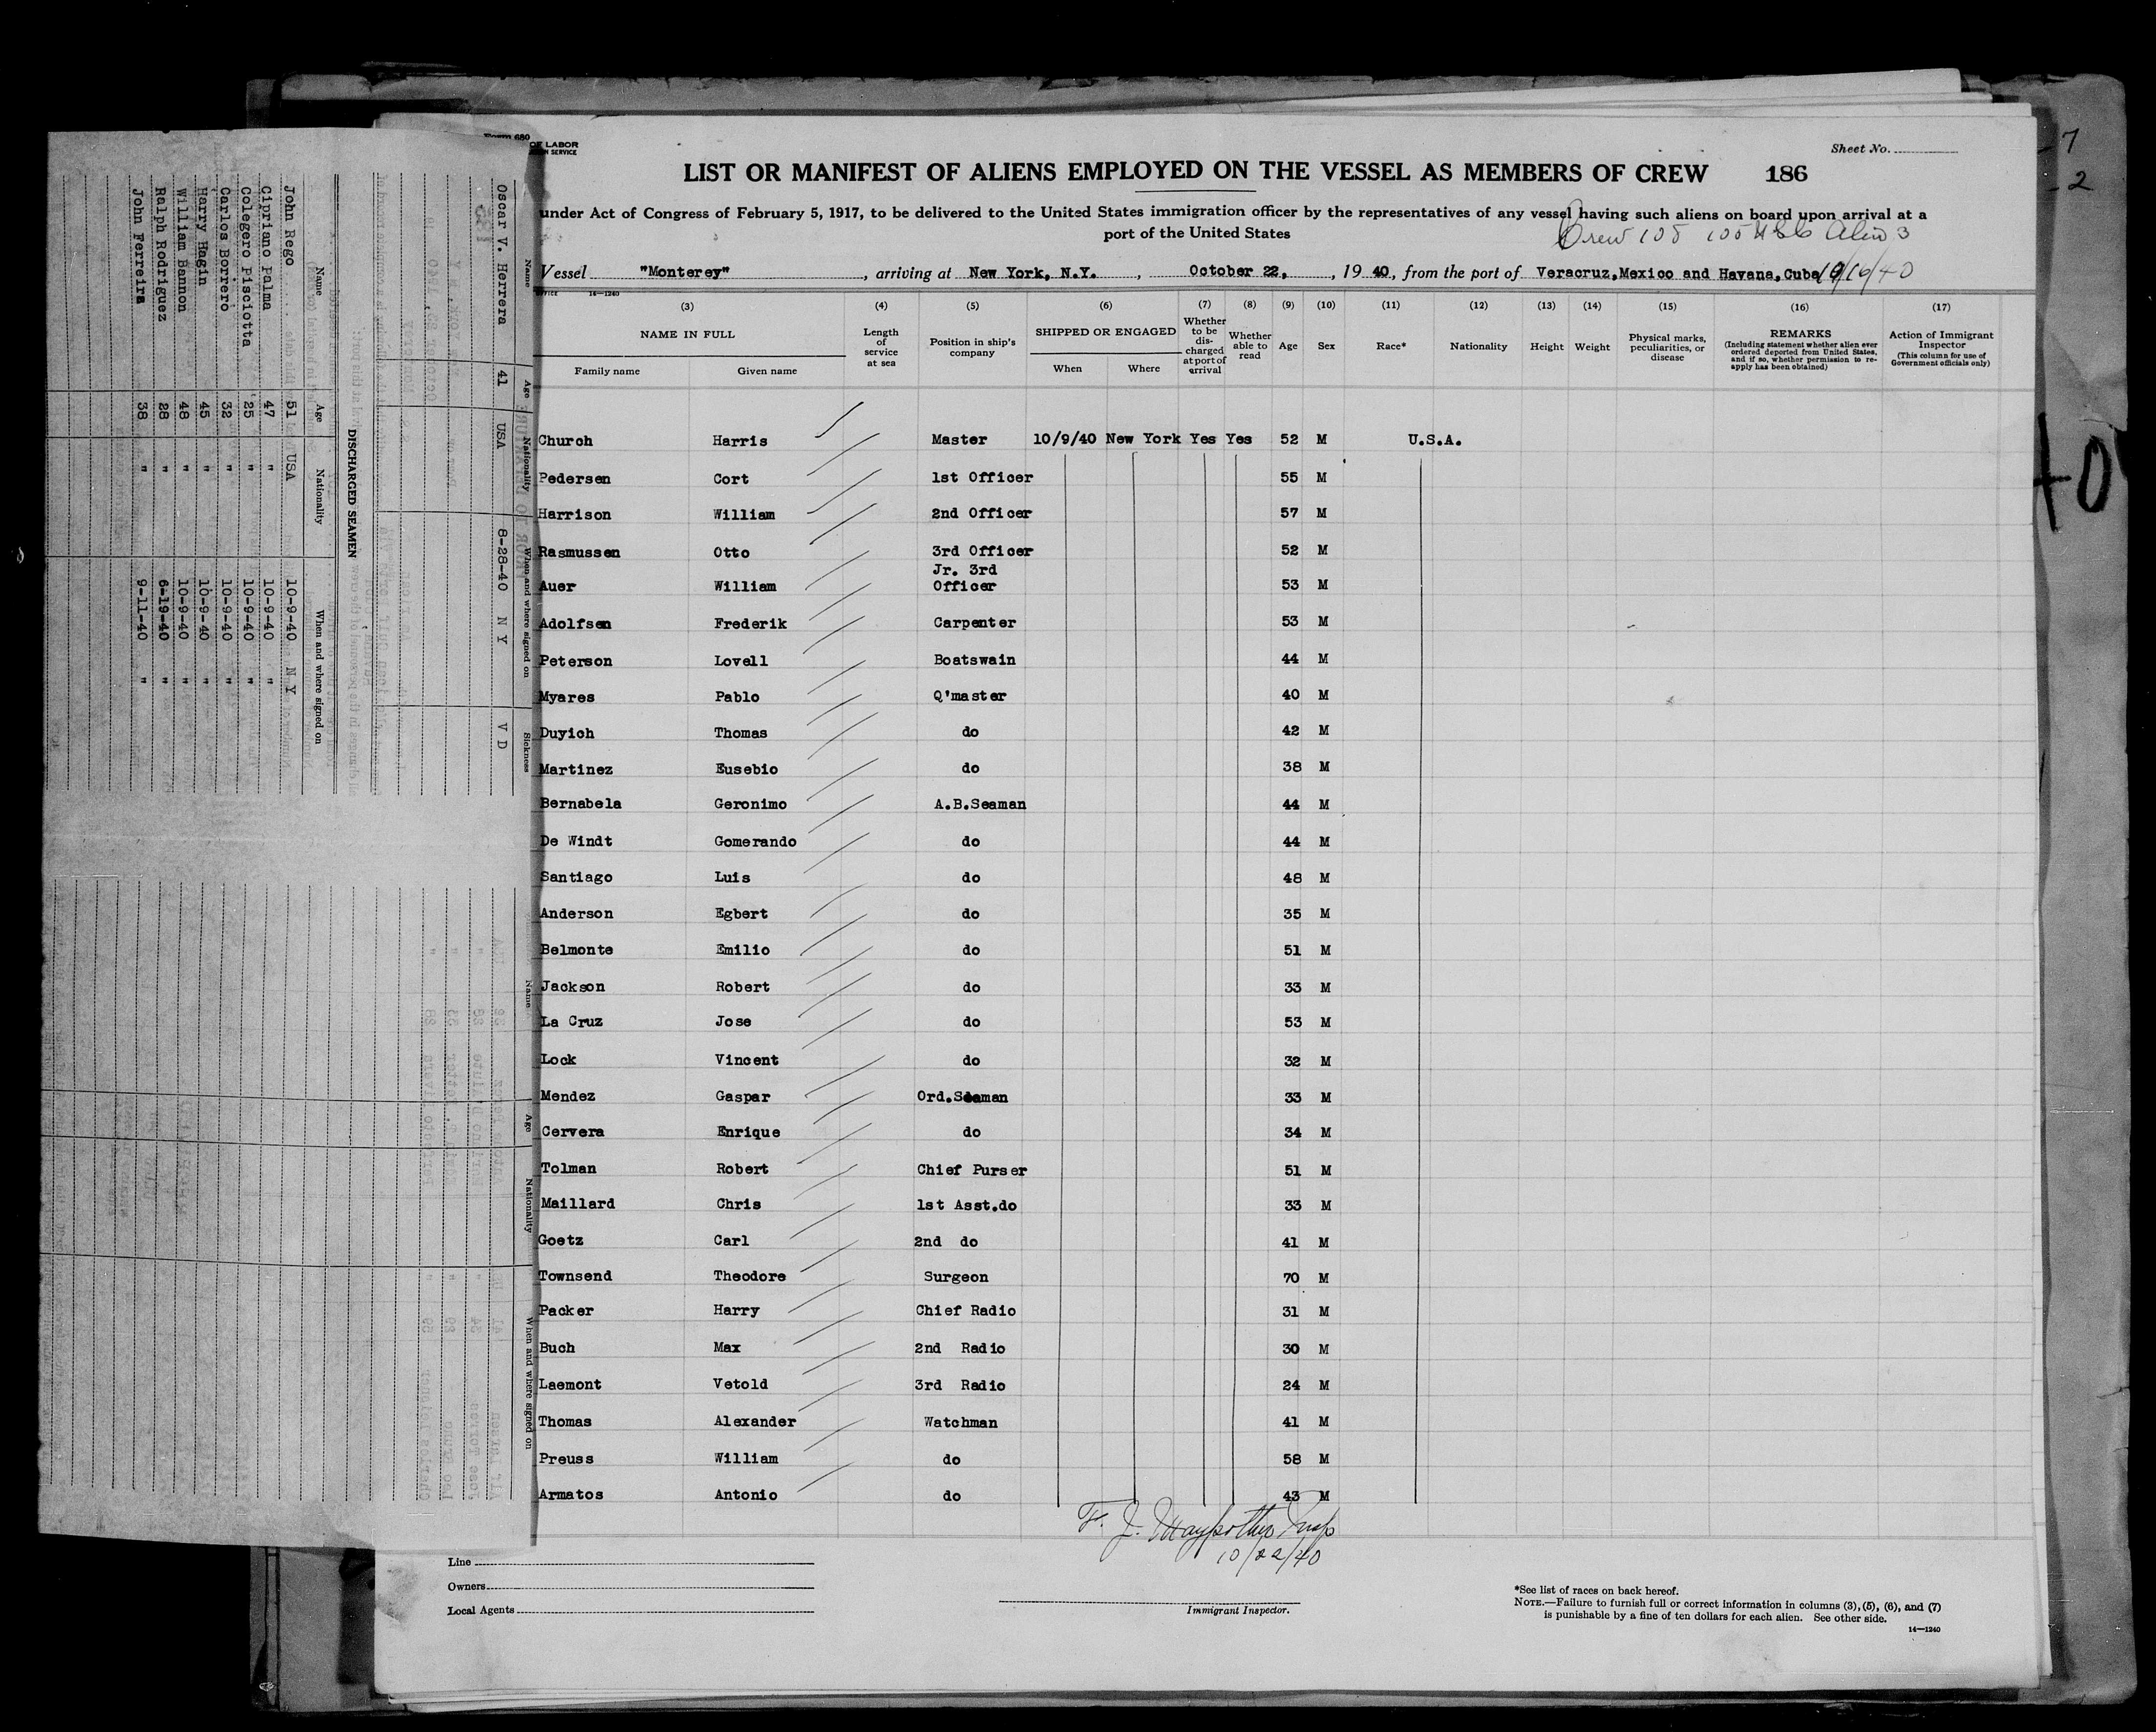 Form 680
OF LABOR
SERVICE
Sheet No.
LIST OR MANIFEST OF ALIENS EMPLOYED ON THE VESSEL AS MEMBERS OF CREW 186
under Act of Congress of February 5, 1917, to be delivered to the United States immigration officer by the representatives of any vessel having such aliens on board upon arrival at a
port of the United States
Crew 108 105 USC Alien 3
Vessel "Monterey", arriving at New York, N.Y., October 22, 19 40, from the port of Veracruz, Mexico and Havana, Cuba 10/16/40
14—1240
(3) (4) (5) (6) (7) (8) (9) (10) (11) (12) (13) (14) (15) (16) (17)
NAME IN FULL Length of service at sea Position in ship's company SHIPPED OR ENGAGED Whether to be discharged at port of arrival Whether able to read Age Sex Race* Nationality Height Weight Physical marks, peculiarities, or disease REMARKS (Including statement whether alien ever ordered deported from United States, and if so, whether permission to re-apply has been obtained) Action of Immigrant Inspector (This column for use of Government officials only)
Family name Given name When Where
Church Harris Master 10/9/40 New York Yes Yes 52 M U.S.A.
Pedersen Cort 1st Officer 55 M
Harrison William 2nd Officer 57 M
Rasmussen Otto 3rd Officer 52 M
Jr. 3rd
Auer William Officer 53 M
Adolfsen Frederik Carpenter 53 M
Peterson Lovell Boatswain 44 M
Myares Pablo Q'master 40 M
Duyich Thomas do 42 M
Martinez Eusebio do 38 M
Bernabela Geronimo A.B.Seaman 44 M
De Windt Gomerando do 44 M
Santiago Luis do 48 M
Anderson Egbert do 35 M
Belmonte Emilio do 51 M
Jackson Robert do 33 M
La Cruz Jose do 53 M
Lock Vincent do 32 M
Mendez Gaspar Ord.Seaman 33 M
Cervera Enrique do 34 M
Tolman Robert Chief Purser 51 M
Maillard Chris 1st Asst.do 33 M
Goetz Carl 2nd do 41 M
Townsend Theodore Surgeon 70 M
Packer Harry Chief Radio 31 M
Buch Max 2nd Radio 30 M
Laemont Vetold 3rd Radio 24 M
Thomas Alexander Watchman 41 M
Preuss William do 58 M
Armatos Antonio do 43 M
F. J. Insp
10/22/40
Line
Owners
Local Agents
Immigrant Inspector.
*See list of races on back hereof.
NOTE.—Failure to furnish full or correct information in columns (3), (5), (6), and (7)
is punishable by a fine of ten dollars for each alien. See other side.
14—1240
Name Age Nationality When and where signed on Sickness
Oscar V. Herrera 41 USA 8-28-40 N Y V D
Name Age Nationality When and where signed on
DISCHARGED SEAMEN
Name Age Nationality When and where signed on
John Rego 51 USA 10-9-40 N Y
Cipriano Palma 47 " 10-9-40 "
Colegero Pisciotta 25 " 10-9-40 "
Carlos Borrero 32 " 10-9-40 "
Harry Hagin 45 " 10-9-40 "
William Bannon 48 " 10-9-40 "
Ralph Rodriguez 28 " 6-19-40 "
John Ferreira 38 " 9-11-40 "